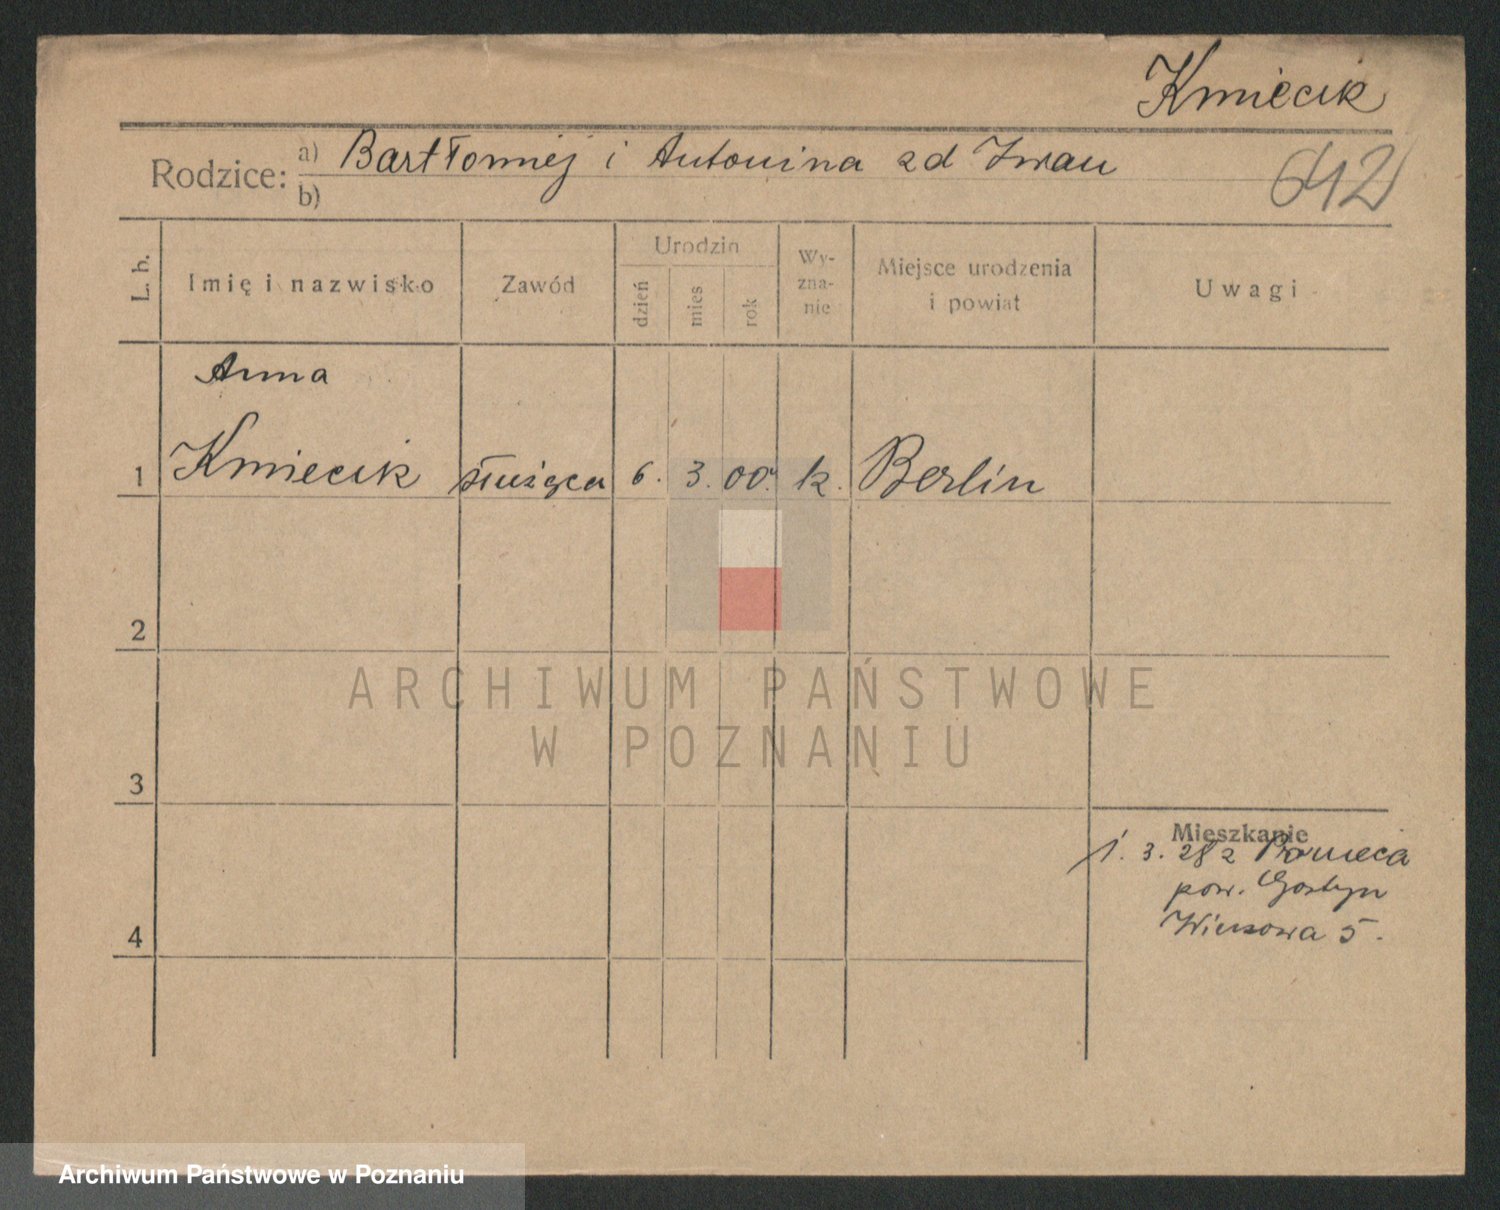 Kmiecik
Rodzice: a) Bartłomiej i Antonina zd Iwan
b)
642
L. b.
Imię i nazwisko
Zawód
Urodzin
dzień
mies
rok
Wy-
zna-
nie
Miejsce urodzenia
i powiat
Uwagi
Anna
1 Kmiecik służąca 6. 3. 00. k. Berlin
2
3
4
Mieszkanie
1. 3. 28 z
pow. Gostyn
5.
ARCHIWUM PAŃSTWOWE
W POZNANIU
Archiwum Państwowe w Poznaniu